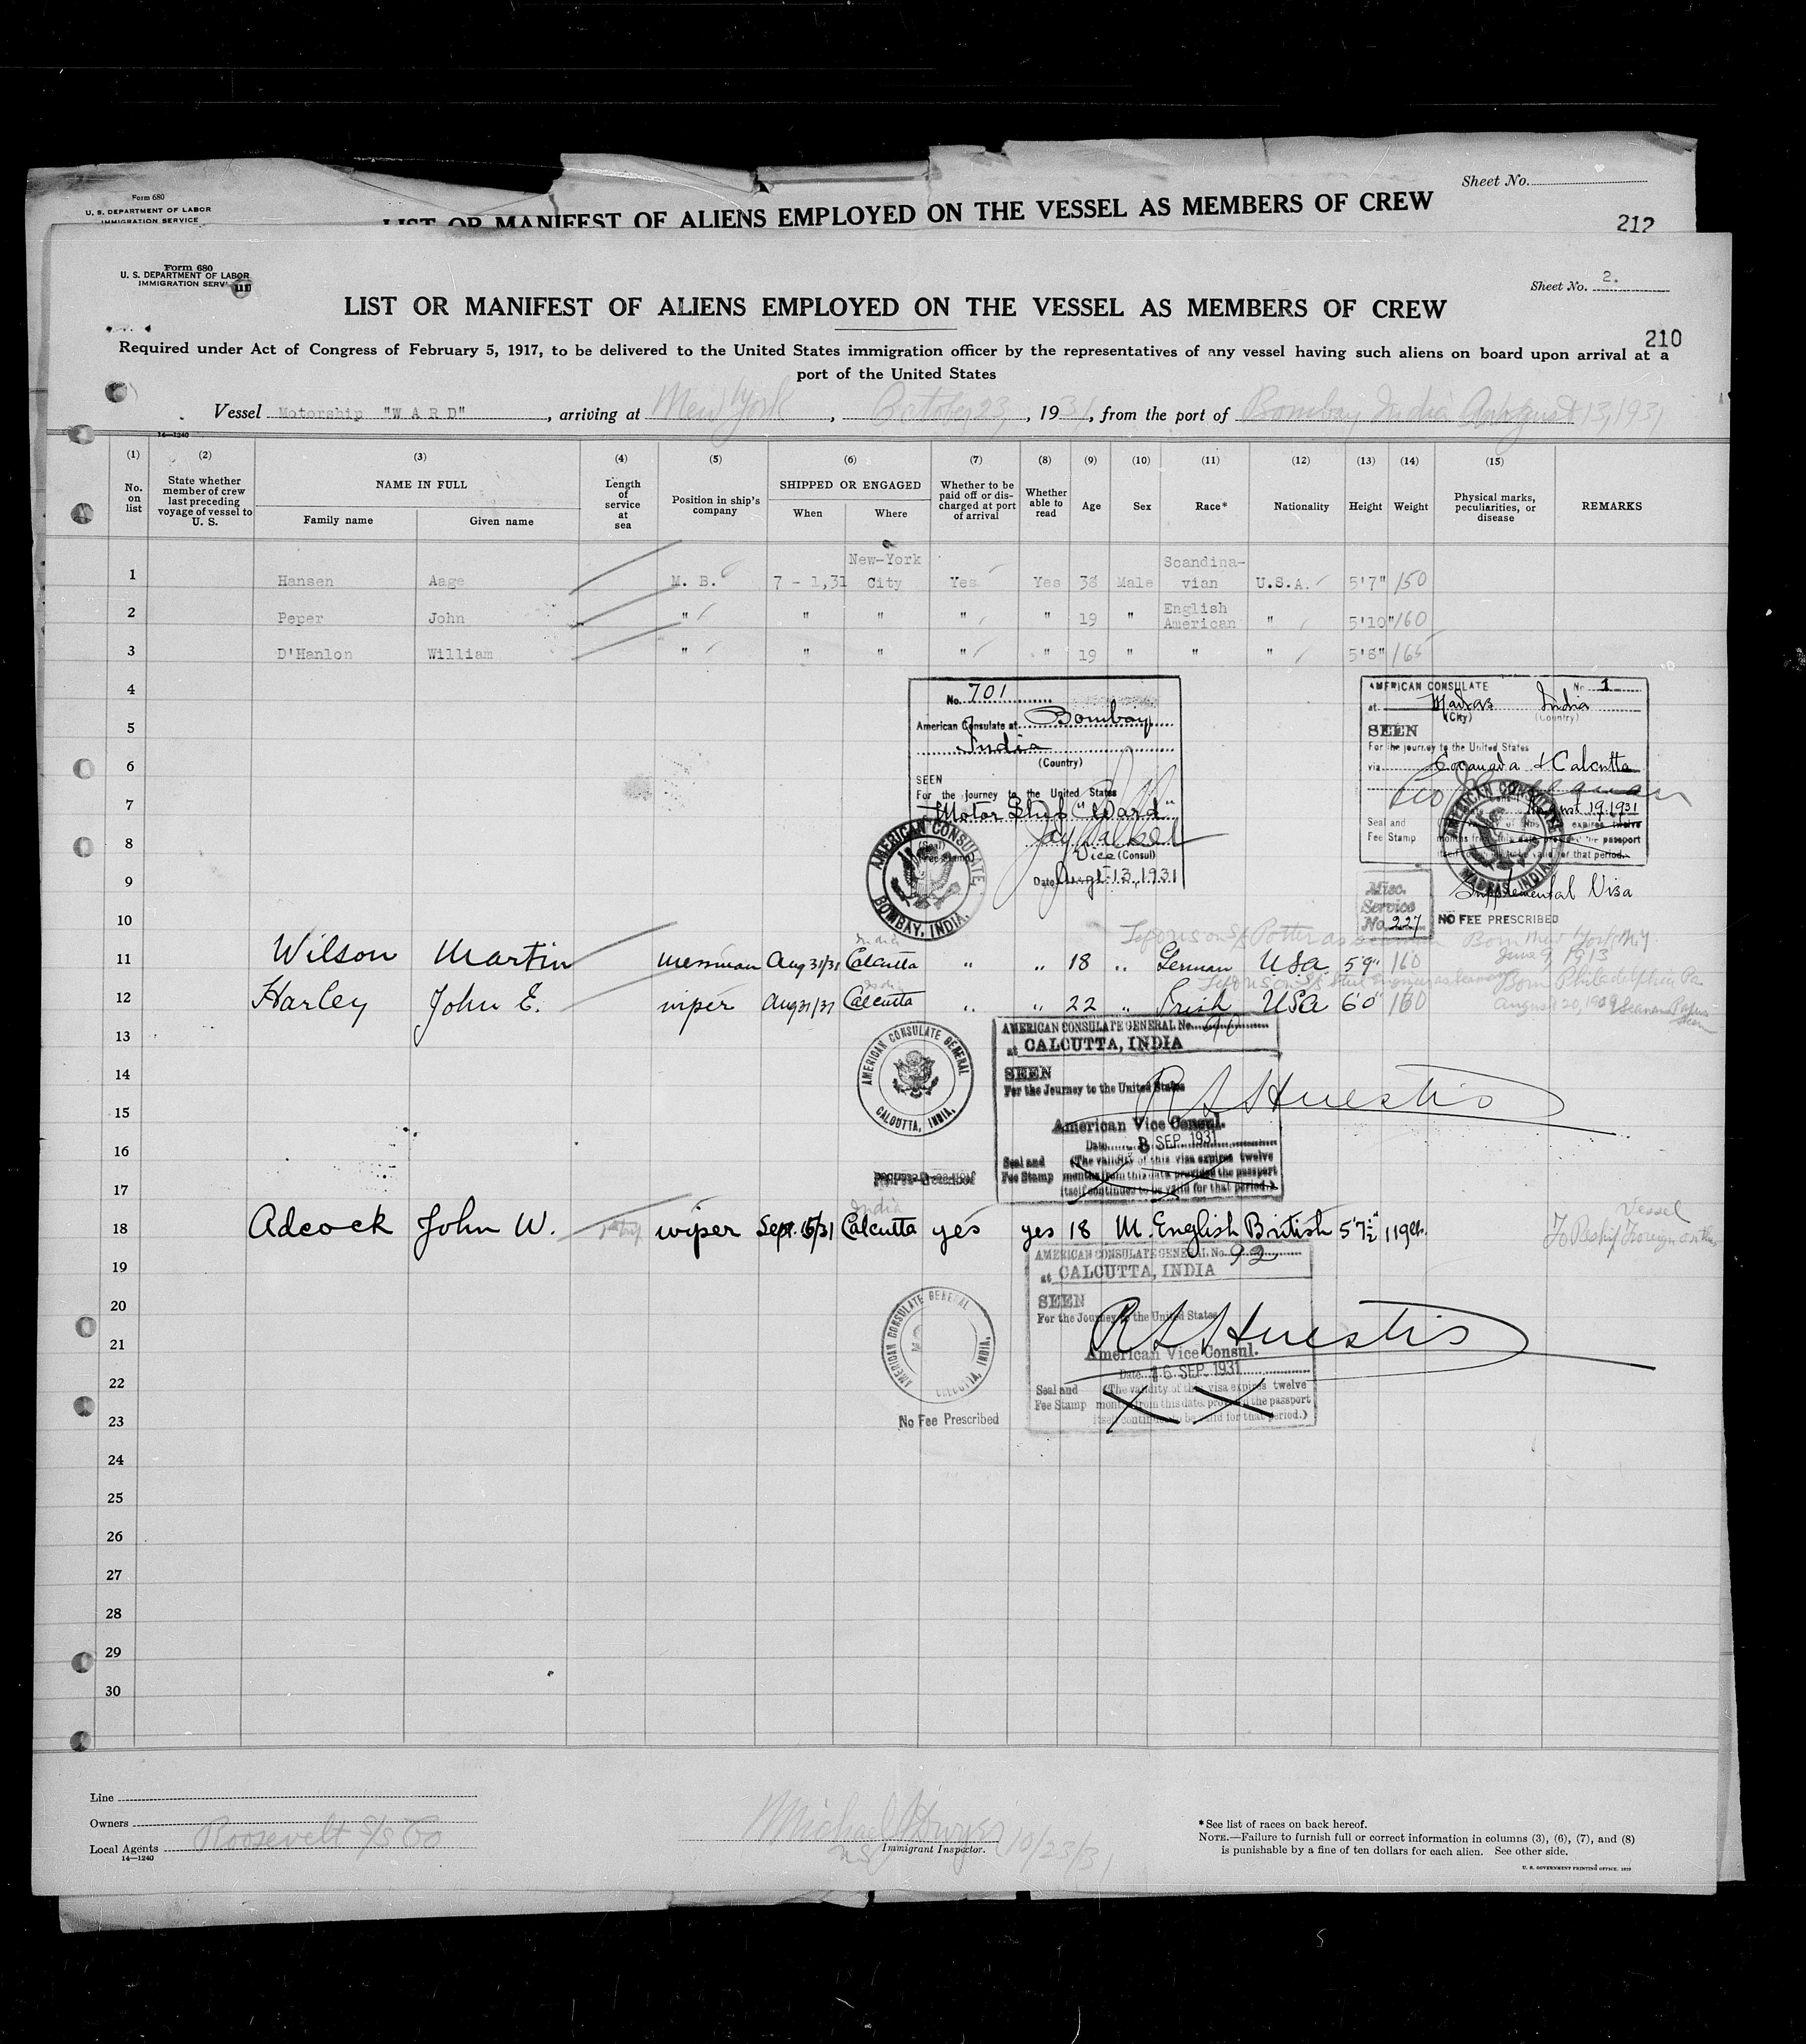 Form 680
U. S. DEPARTMENT OF LABOR
IMMIGRATION SERVICE
Sheet No.
LIST OR MANIFEST OF ALIENS EMPLOYED ON THE VESSEL AS MEMBERS OF CREW
212
Form 680
U. S. DEPARTMENT OF LABOR
IMMIGRATION SERV
Sheet No. 2.
LIST OR MANIFEST OF ALIENS EMPLOYED ON THE VESSEL AS MEMBERS OF CREW
210
Required under Act of Congress of February 5, 1917, to be delivered to the United States immigration officer by the representatives of any vessel having such aliens on board upon arrival at a
port of the United States
Vessel Motorship "WARD", arriving at New York, October 23, 1931, from the port of Bombay India August 13, 1931
14—1240
(1) (2) (3) (4) (5) (6) (7) (8) (9) (10) (11) (12) (13) (14) (15)
No. on list
State whether member of crew last preceding voyage of vessel to U. S.
NAME IN FULL
Family name Given name
Length of service at sea
Position in ship's company
SHIPPED OR ENGAGED
When Where
Whether to be paid off or discharged at port of arrival
Whether able to read
Age
Sex
Race*
Nationality
Height
Weight
Physical marks, peculiarities, or disease
REMARKS
1 Hansen Aage M. B. 7 - 1,31 New-York City Yes Yes 38 Male Scandina-vian U.S.A. 5'7" 150
2 Peper John " " " " " 19 " English American " 5'10" 160
3 D'Hanlon William " " " " " 19 " " " 5'8" 165
4
5
6
7
8
9
10
No. 701
American Consulate at Bombay
India
(Country)
SEEN
For the journey to the United States
Motor Ship "Ward"
(Seal)
Vice (Consul)
Date Augt. 13, 1931
AMERICAN CONSULATE, BOMBAY, INDIA.
AMERICAN CONSULATE No. 1
at Madras India
(City) (Country)
SEEN
For the journey to the United States
via Cocanada & Calcutta
August 19, 1931
Seal and Fee Stamp
AMERICAN CONSULATE MADRAS, INDIA
Supplemental Visa
Misc. Service No. 227
NO FEE PRESCRIBED
Born New York N.Y.
June 9, 1913
11 Wilson Martin messman Aug 31/31 India Calcutta " " 18 " German USA 5'9" 160
Born Philadelphia Pa
August 20, 1909
12 Harley John E. wiper Aug 31/31 India Calcutta " " 22 " Irish USA 6'0" 160
13
14
15
16
17
AMERICAN CONSULATE GENERAL CALCUTTA, INDIA.
AMERICAN CONSULATE GENERAL No. 90
at CALCUTTA, INDIA
SEEN
For the Journey to the United States
R S Huestis
American Vice Consul.
Date 8 SEP. 1931
Seal and Fee Stamp (The validity of this visa expires twelve months from this date provided the passport itself continues to be valid for that period.)
No Fee Prescribed
18 Adcock John W. 1st trip wiper Sept. 16/31 India Calcutta yes yes 18 M. English British 5'7½" 119 lb. To Reship Foreign on this Vessel
19
20
21
22
23
AMERICAN CONSULATE GENERAL No. 92
at CALCUTTA, INDIA
SEEN
For the Journey to the United States
R S Huestis
American Vice Consul.
Date 16 SEP. 1931
Seal and Fee Stamp (The validity of this visa expires twelve months from this date provided the passport itself continues to be valid for that period.)
AMERICAN CONSULATE GENERAL CALCUTTA, INDIA.
No Fee Prescribed
24
25
26
27
28
29
30
Line
Owners
Local Agents Roosevelt S/S Co
14—1240
Michael Dwyer
Immigrant Inspector. 10/23/31
*See list of races on back hereof.
NOTE.—Failure to furnish full or correct information in columns (3), (6), (7), and (8)
is punishable by a fine of ten dollars for each alien. See other side.
U. S. GOVERNMENT PRINTING OFFICE: 1929